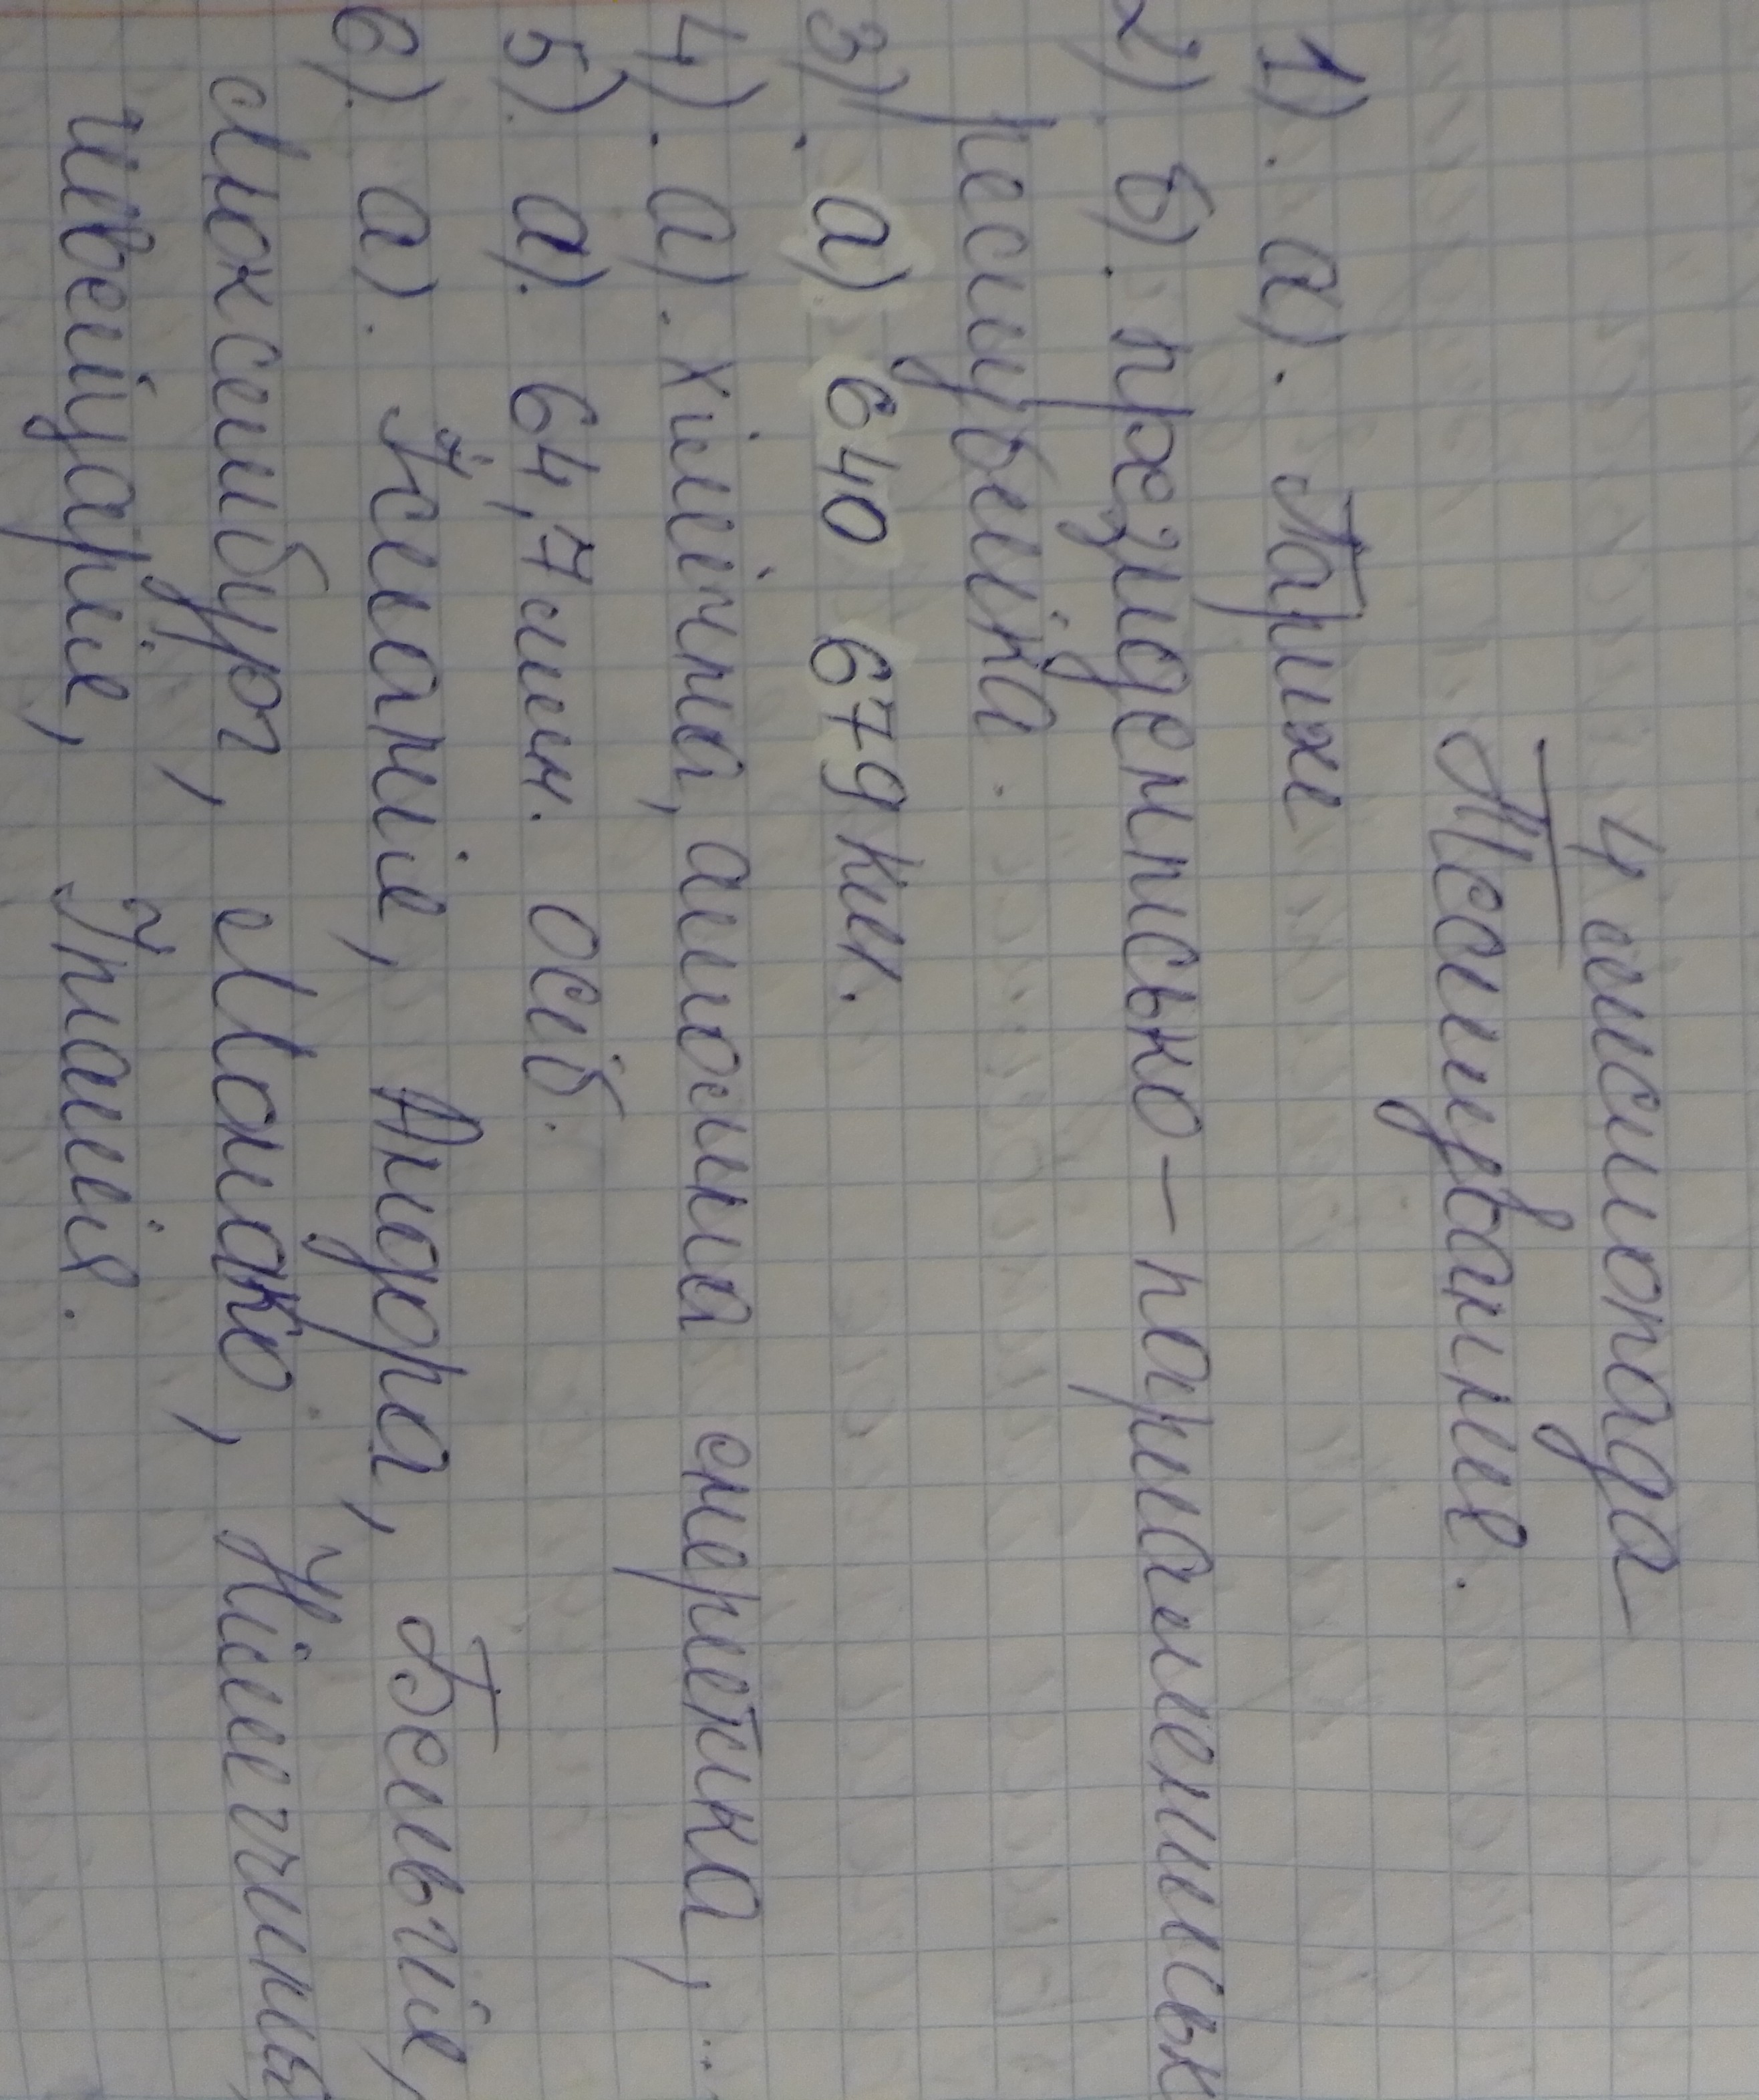 4 листопада
Тестування.
1). а). Париж
2) б). президентсько-парламентськ
республіка.
3). а) 640 679 км.
4). а). хімічна, атомна енергетика, ...
5). а). 64,7 млн. осіб.
6). а). Іспанія, Андора, Бельгія,
Люксембург, Монако, Німеччина,
Швейцарія, Італія.